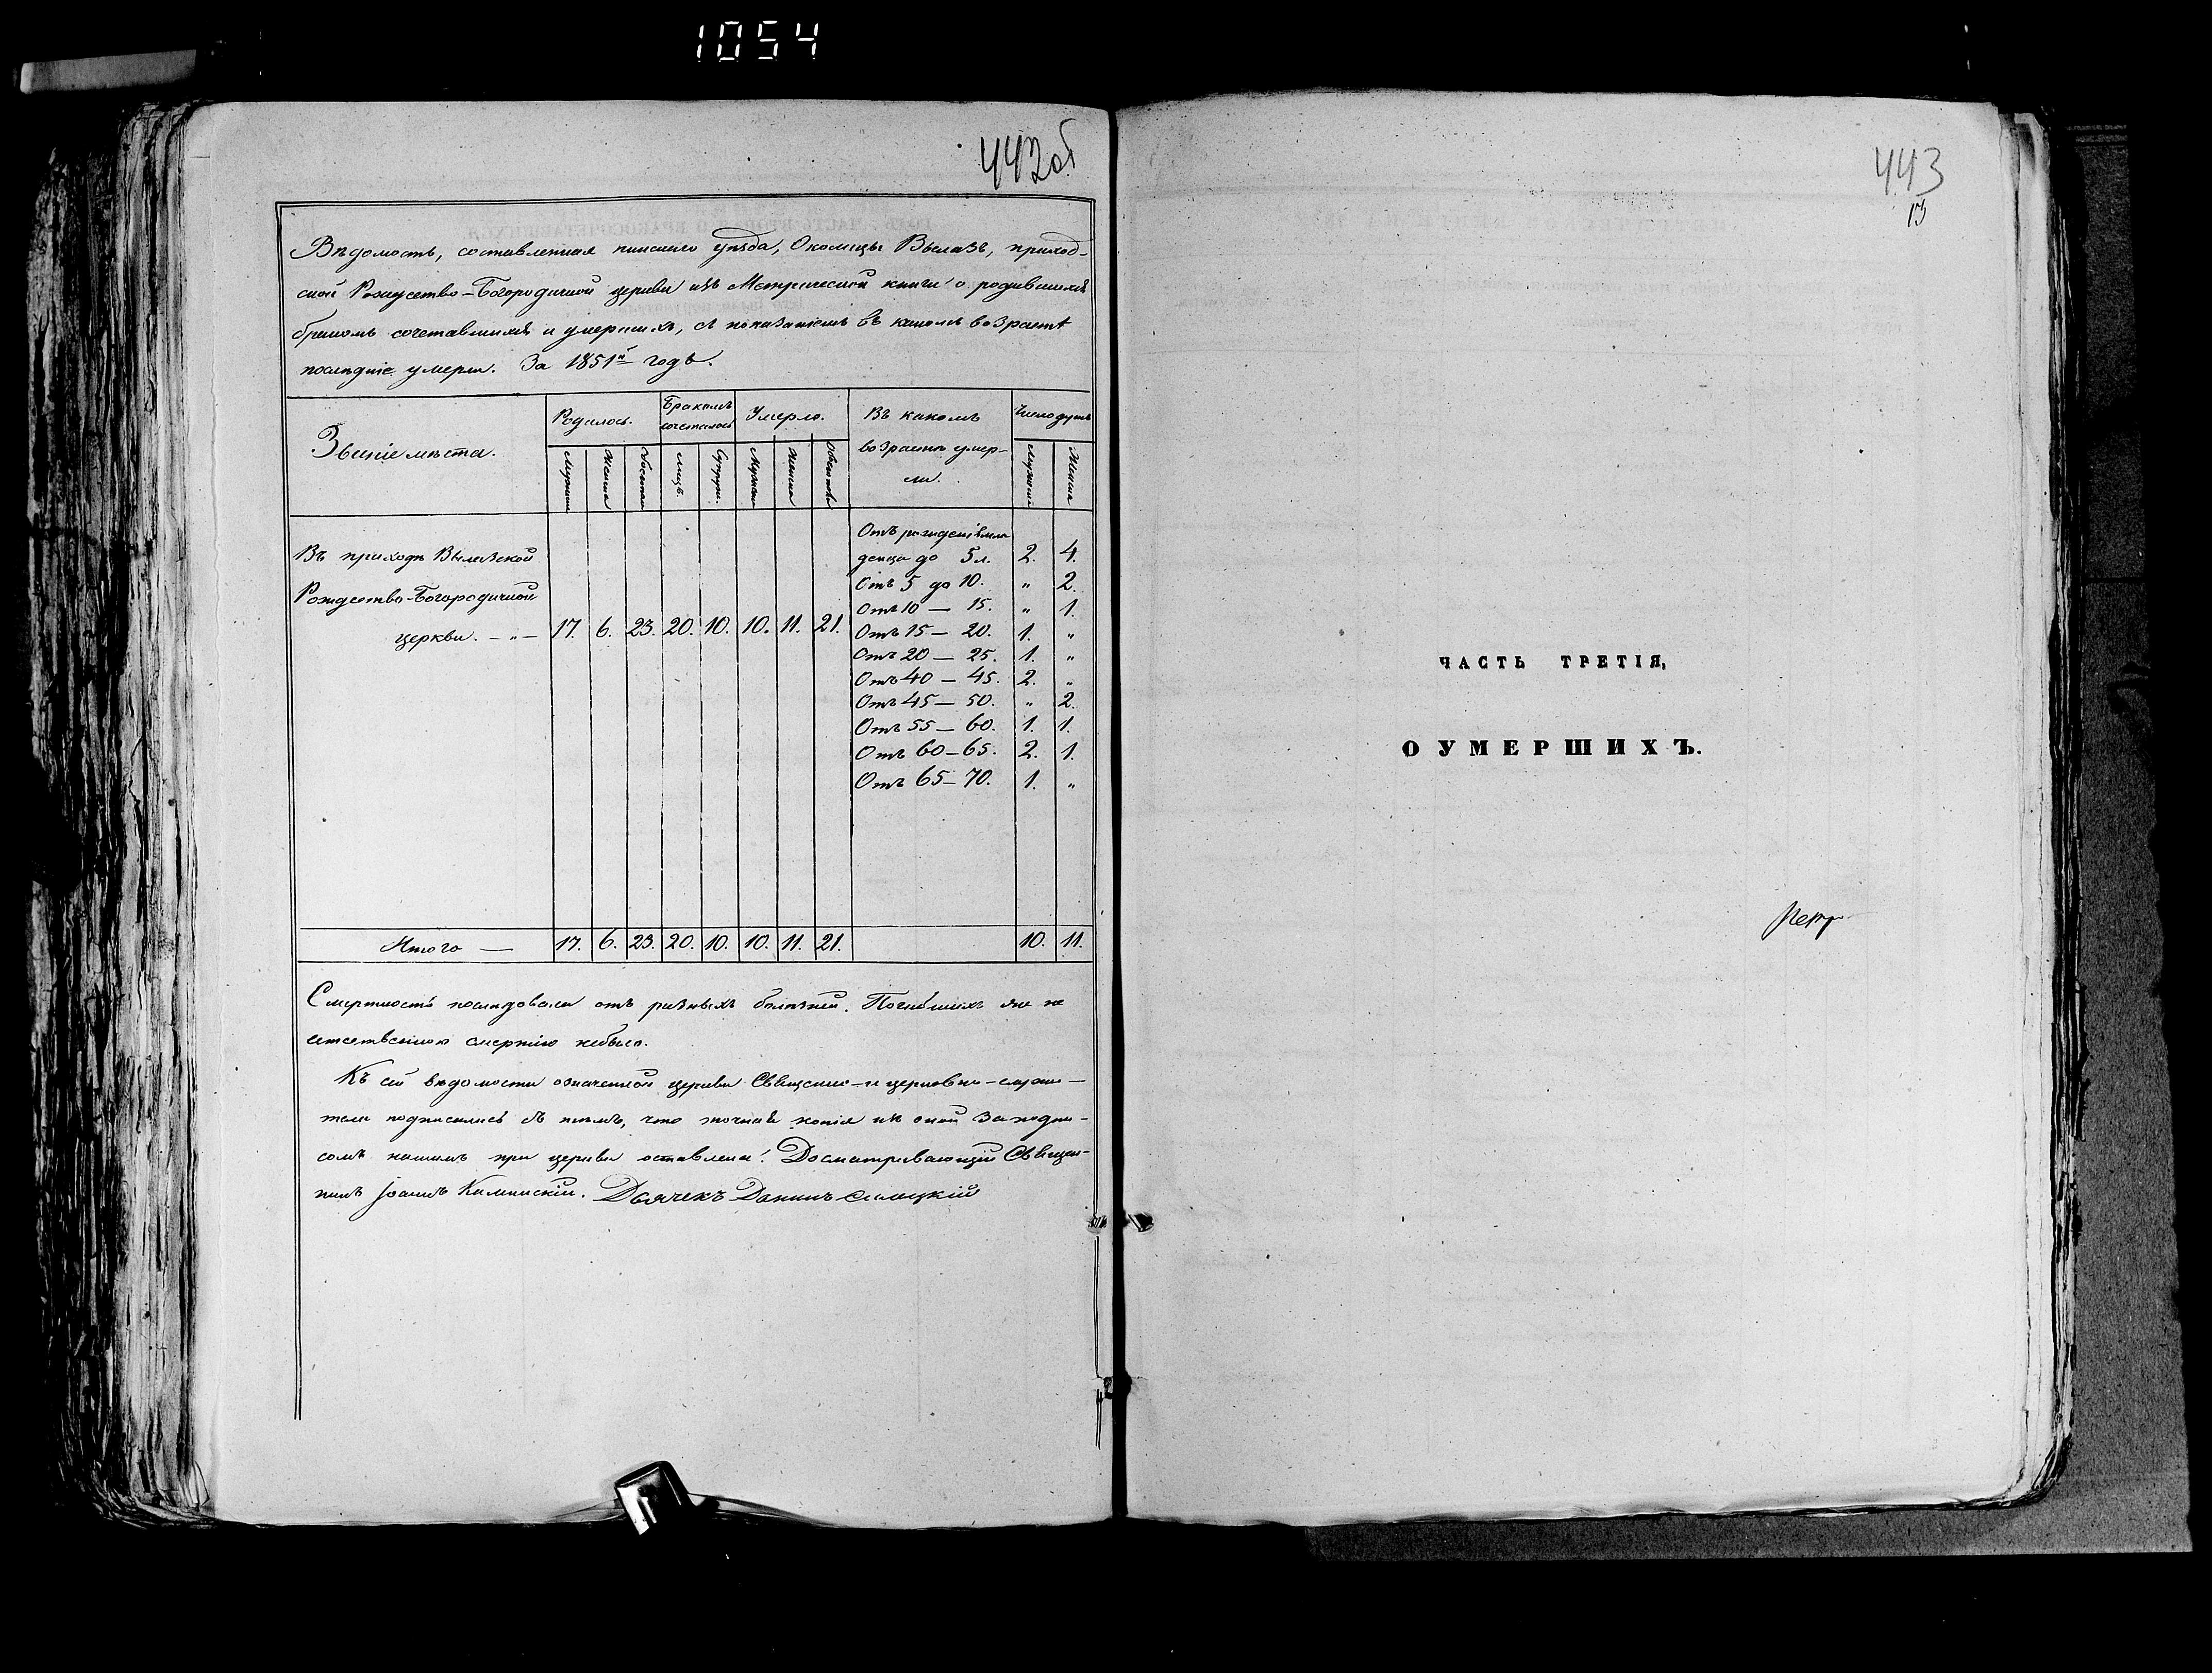 1054
442об
Вѣдомость, составленная пинскаго уѣзда, Околицы Вылазъ, приход-
ской Рождество-Богородичной церкви изъ Метрической книги о родившихся
бракомъ сочетавшихся и умершихъ, съ показаніемъ въ какомъ возрастѣ
послѣдніе умерли. За 1851й годъ.
Званіе мѣста. Родилось. Бракомъ сочеталось Умерло. Въ какомъ возрастѣ умер-ли. Число душъ
Мужеска Женска Обоего лицъ. Супруж. Мужеска Женска Мужеска Женска
Отъ рожденія мла
Въ приходѣ Вылазской денца до 5 л. 2. 4.
Отъ 5 до 10. „ 2.
Рождество-Богородичной Отъ 10 — 15. „ 1.
церкви. — „ — 17. 6. 23. 20. 10. 10. 11. 21. Отъ 15 — 20. 1. „
Отъ 20 — 25. 1. „
Отъ 40 — 45. 2. „
Отъ 45 — 50. „ 2.
Отъ 55 — 60. 1. 1.
Отъ 60 — 65. 2. 1.
Отъ 65 — 70. 1. „
Итого — 17. 6. 23. 20. 10. 10. 11. 21. 10. 11.
Смертность послѣдовала отъ разныхъ болѣзней. Погибшихъ же не
естественною смертію небыло.
Къ сей вѣдомости означенной церкви Священно-и церковно-служи-
тели подписались съ тѣмъ, что точная копія изъ оной за подпи-
сомъ нашимъ при церкви оставлена. Досматривающій Священ-
никъ Іоаннъ Каминскій. Дьячекъ
443
13
ЧАСТЬ ТРЕТІЯ,
О УМЕРШИХЪ.